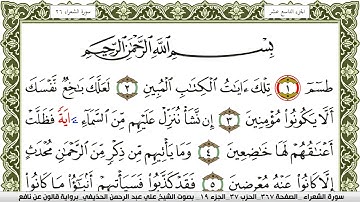 الجزء التاسع عشر
سورة الشعراء ٢٦
بِسْمِ اللَّهِ الرَّحْمَٰنِ الرَّحِيمِ
طسِّمِّ ١ تِلْكَ ءَايَٰتُ الْكِتَٰبِ الْمُبِينِ ٢ لَعَلَّكَ بَٰخِعٌ نَّفْسَكَ
أَلَّا يَكُونُوا مُؤْمِنِينَ ٣ إِن نَّشَأْ نُنَزِّلْ عَلَيْهِم مِّنَ السَّمَآءِ ايَةً فَظَلَّتْ
أَعْنَٰقُهُمْ لَهَا خَٰضِعِينَ ٤ وَمَا يَأْتِيهِم مِّن ذِكْرٍ مِّنَ الرَّحْمَٰنِ مُحْدَثٍ
إِلَّا كَانُوا عَنْهُ مُعْرِضِينَ ٥ فَقَدْ كَذَّبُوا فَسَيَأْتِيهِمْ أَنۢبَٰٓؤُا مَا كَانُوا
سورة الشعراء . الصفحة ٣٦٧ الحزب ٣٧ . الجزء ١٩ . بصوت الشيخ علي عبد الرحمن الحذيفي . برواية قالون عن نافع